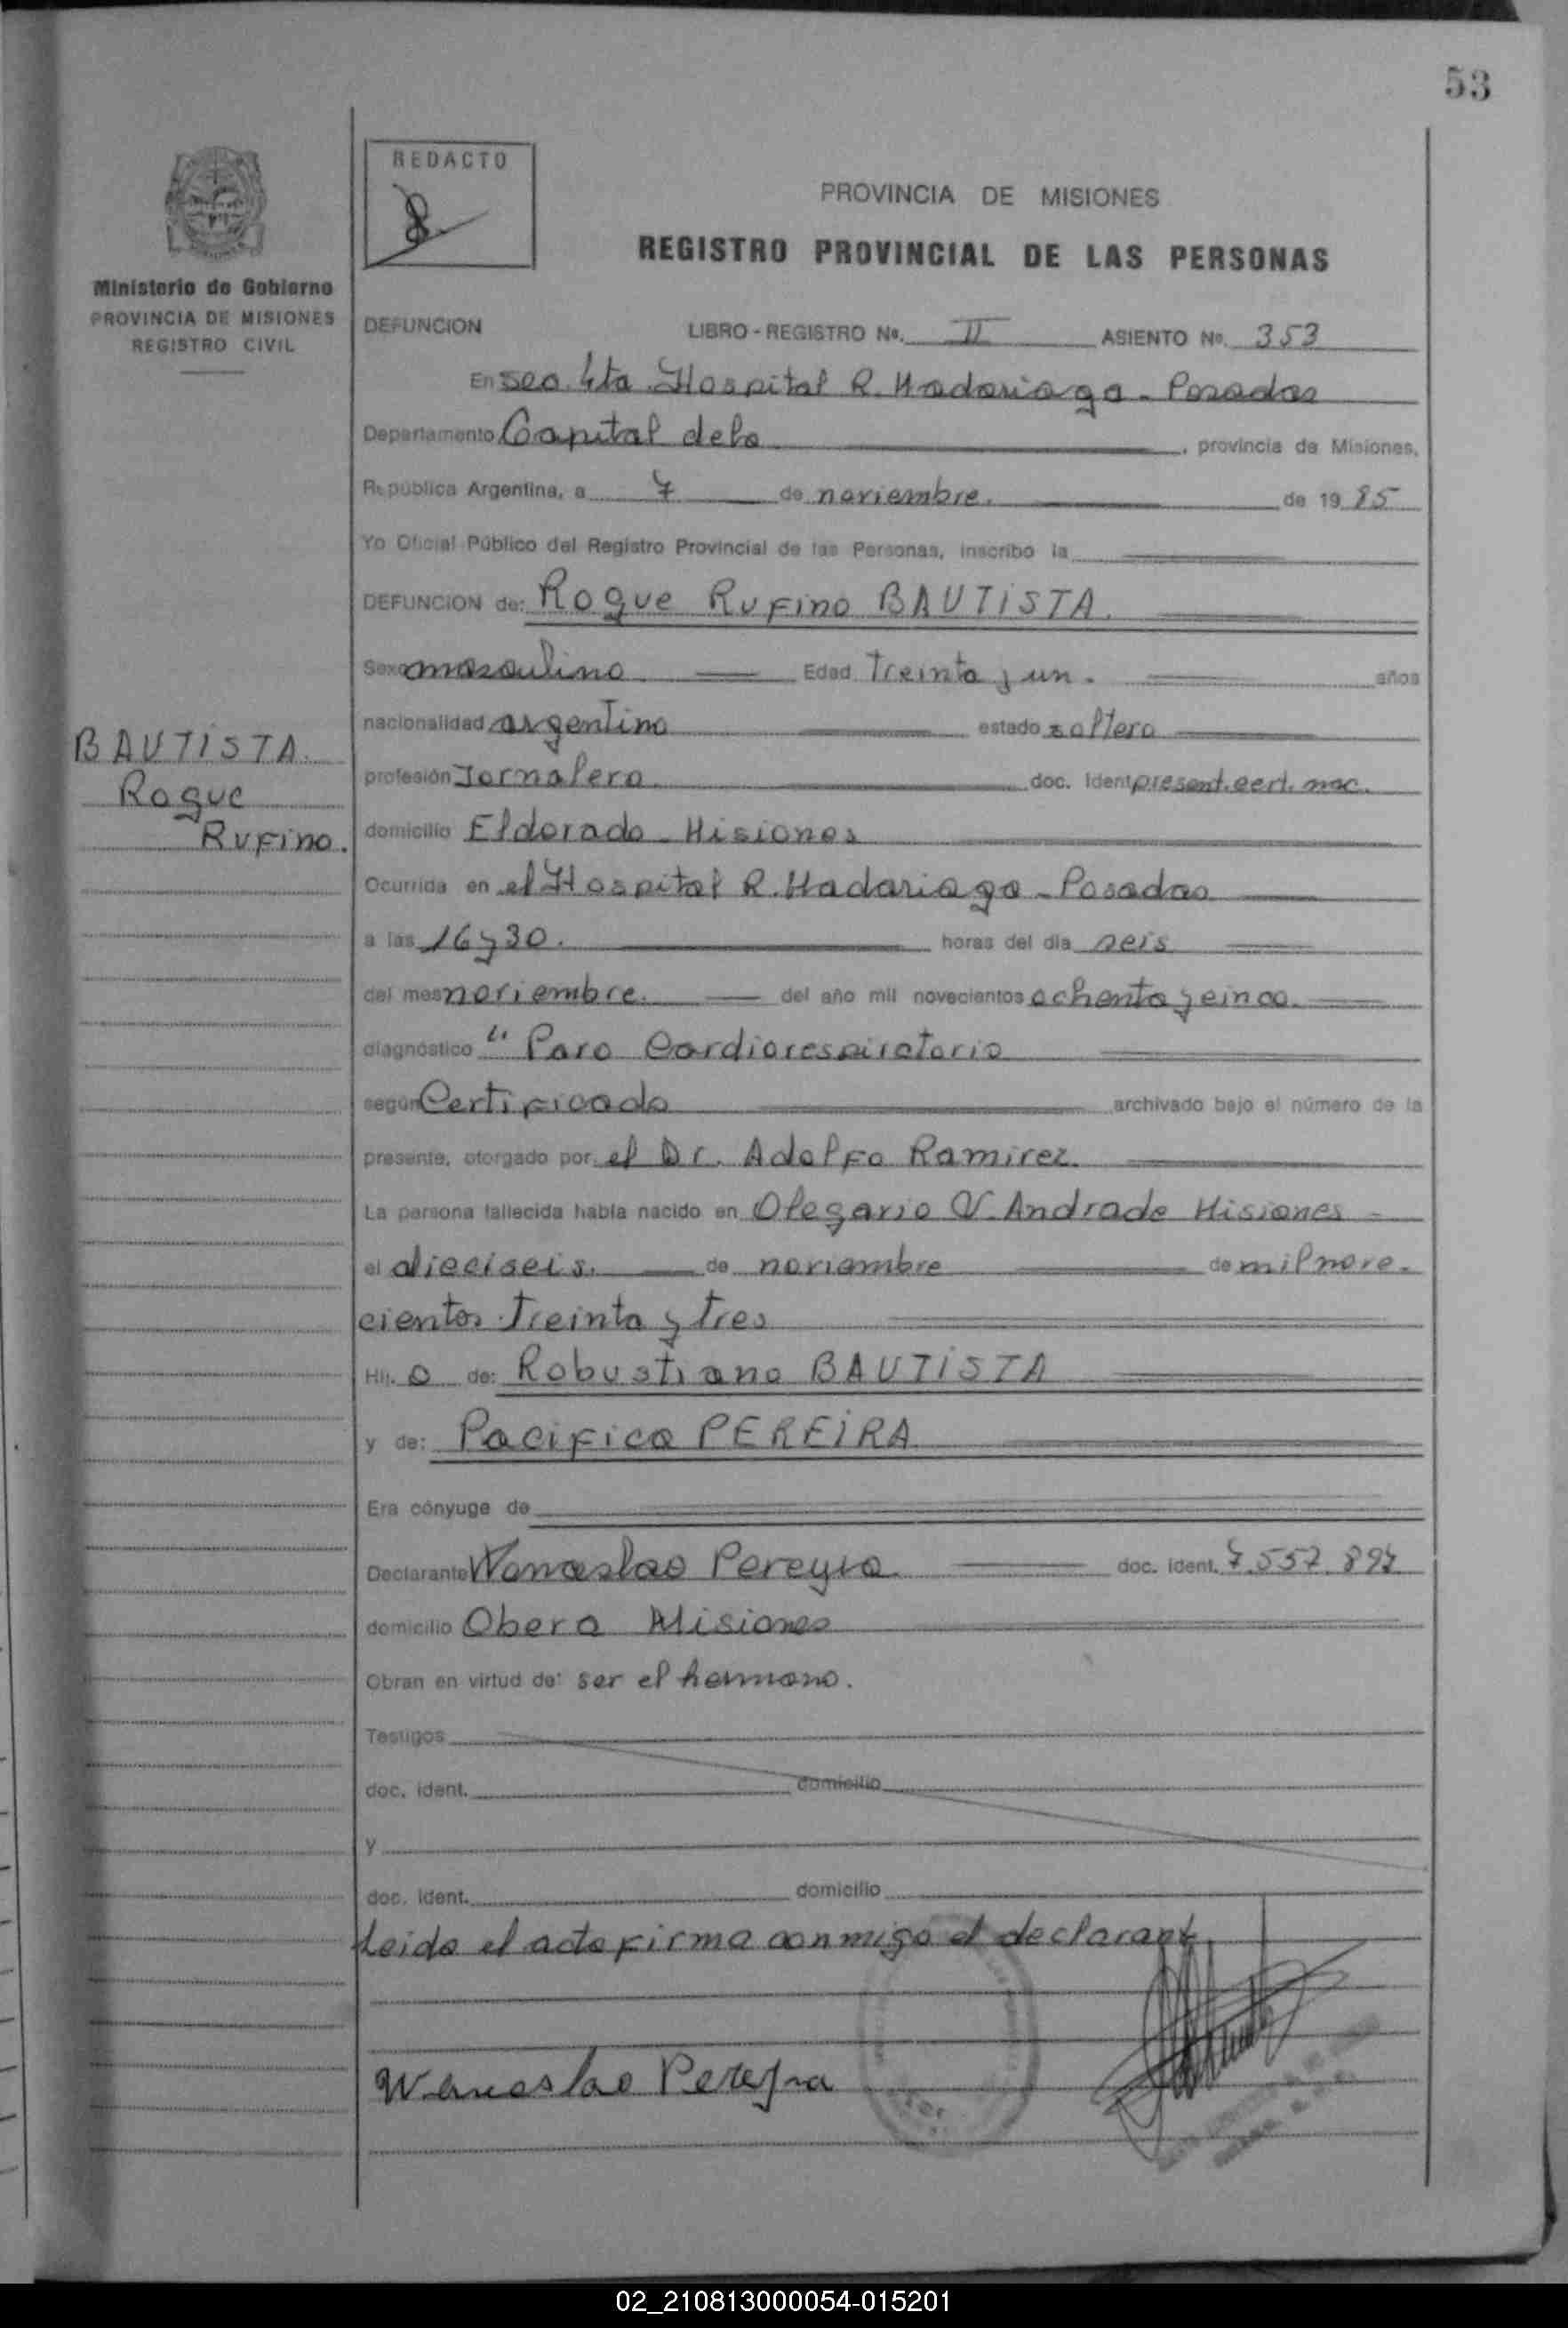 53
REDACTO
PROVINCIA DE MISIONES
REGISTRO PROVINCIAL DE LAS PERSONAS
Ministerio de Gobierno
PROVINCIA DE MISIONES
REGISTRO CIVIL
DEFUNCION LIBRO - REGISTRO No. II ASIENTO No. 353
En sec. 4ta. Hospital R. Madariaga - Posadas
Departamento Capital de la , provincia de Misiones,
República Argentina, a 7 de noviembre. de 19 85
Yo Oficial Público del Registro Provincial de las Personas, inscribo la
DEFUNCION de: Roque Rufino BAUTISTA.
Sexo masculino Edad Treinta y un. años
nacionalidad argentino estado soltero
profesión Jornalero. doc. Ident present. cert. nac.
domicilio Eldorado - Misiones
Ocurrida en el Hospital R. Madariaga - Posadas
a las 16 y 30. horas del día seis
del mes noviembre. del año mil novecientos ochenta y cinco.
diagnóstico " Paro Cardiorespiratorio
según Certificado archivado bajo el número de la
presente, otorgado por el Dr. Adolfo Ramirez.
La persona fallecida había nacido en Olegario V. Andrade Misiones -
el dieciseis. de noviembre de mil nove-
cientos Treinta y Tres
Hij. o de: Robustiano BAUTISTA
y de: Pacifica PEREIRA
Era cónyuge de
Declarante Wenceslao Pereyra. doc. ident. 7.557.897
domicilio Obera Misiones
Obran en virtud de: ser el hermano.
Testigos
doc. ident. domicilio
y
doc. ident. domicilio
Leida el acta firma conmigo el declarant
Wenceslao Pereyra
BAUTISTA.
Roque
Rufino.
02_210813000054-015201